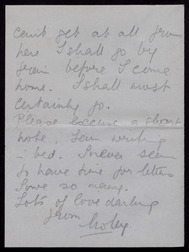 can't get at all from
here I shall go by
train before I come
home. I shall most
certainly go.
Please excuse a short
note. I am writing
in bed. I never seem
to have time for letters
I owe so many.
Lots of love darling
from